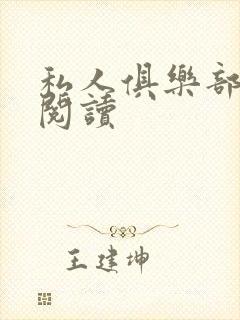 私人俱樂部
閱讀
王建坤